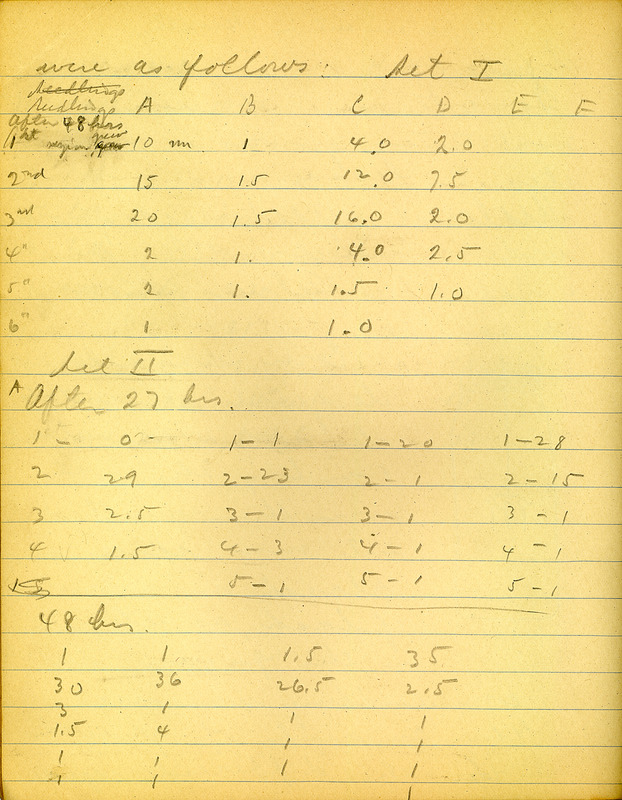 were as follows: Set I
Seedlings
Seedlings A B C D E F
After 48 hrs
1st region grew 10 mm 1 4.0 2.0
2nd 15 1.5 12.0 7.5
3rd 20 1.5 16.0 2.0
4" 2 1. 4.0 2.5
5" 2 1. 1.5 1.0
6" 1 1.0
Set II
A After 27 hrs.
1 - 0 - 1 - 1 1 - 20 1 - 28
2 29 2 - 23 2 - 1 2 - 15
3 2.5 3 - 1 3 - 1 3 - 1
4 1.5 4 - 3 4 - 1 4 - 1
5 - 1 5 - 1 5 - 1
48 hrs.
1 1. 1.5 35
30 36 26.5 2.5
3 1 1 1
1.5 4 1 1
1 1 1 1
1 1 1